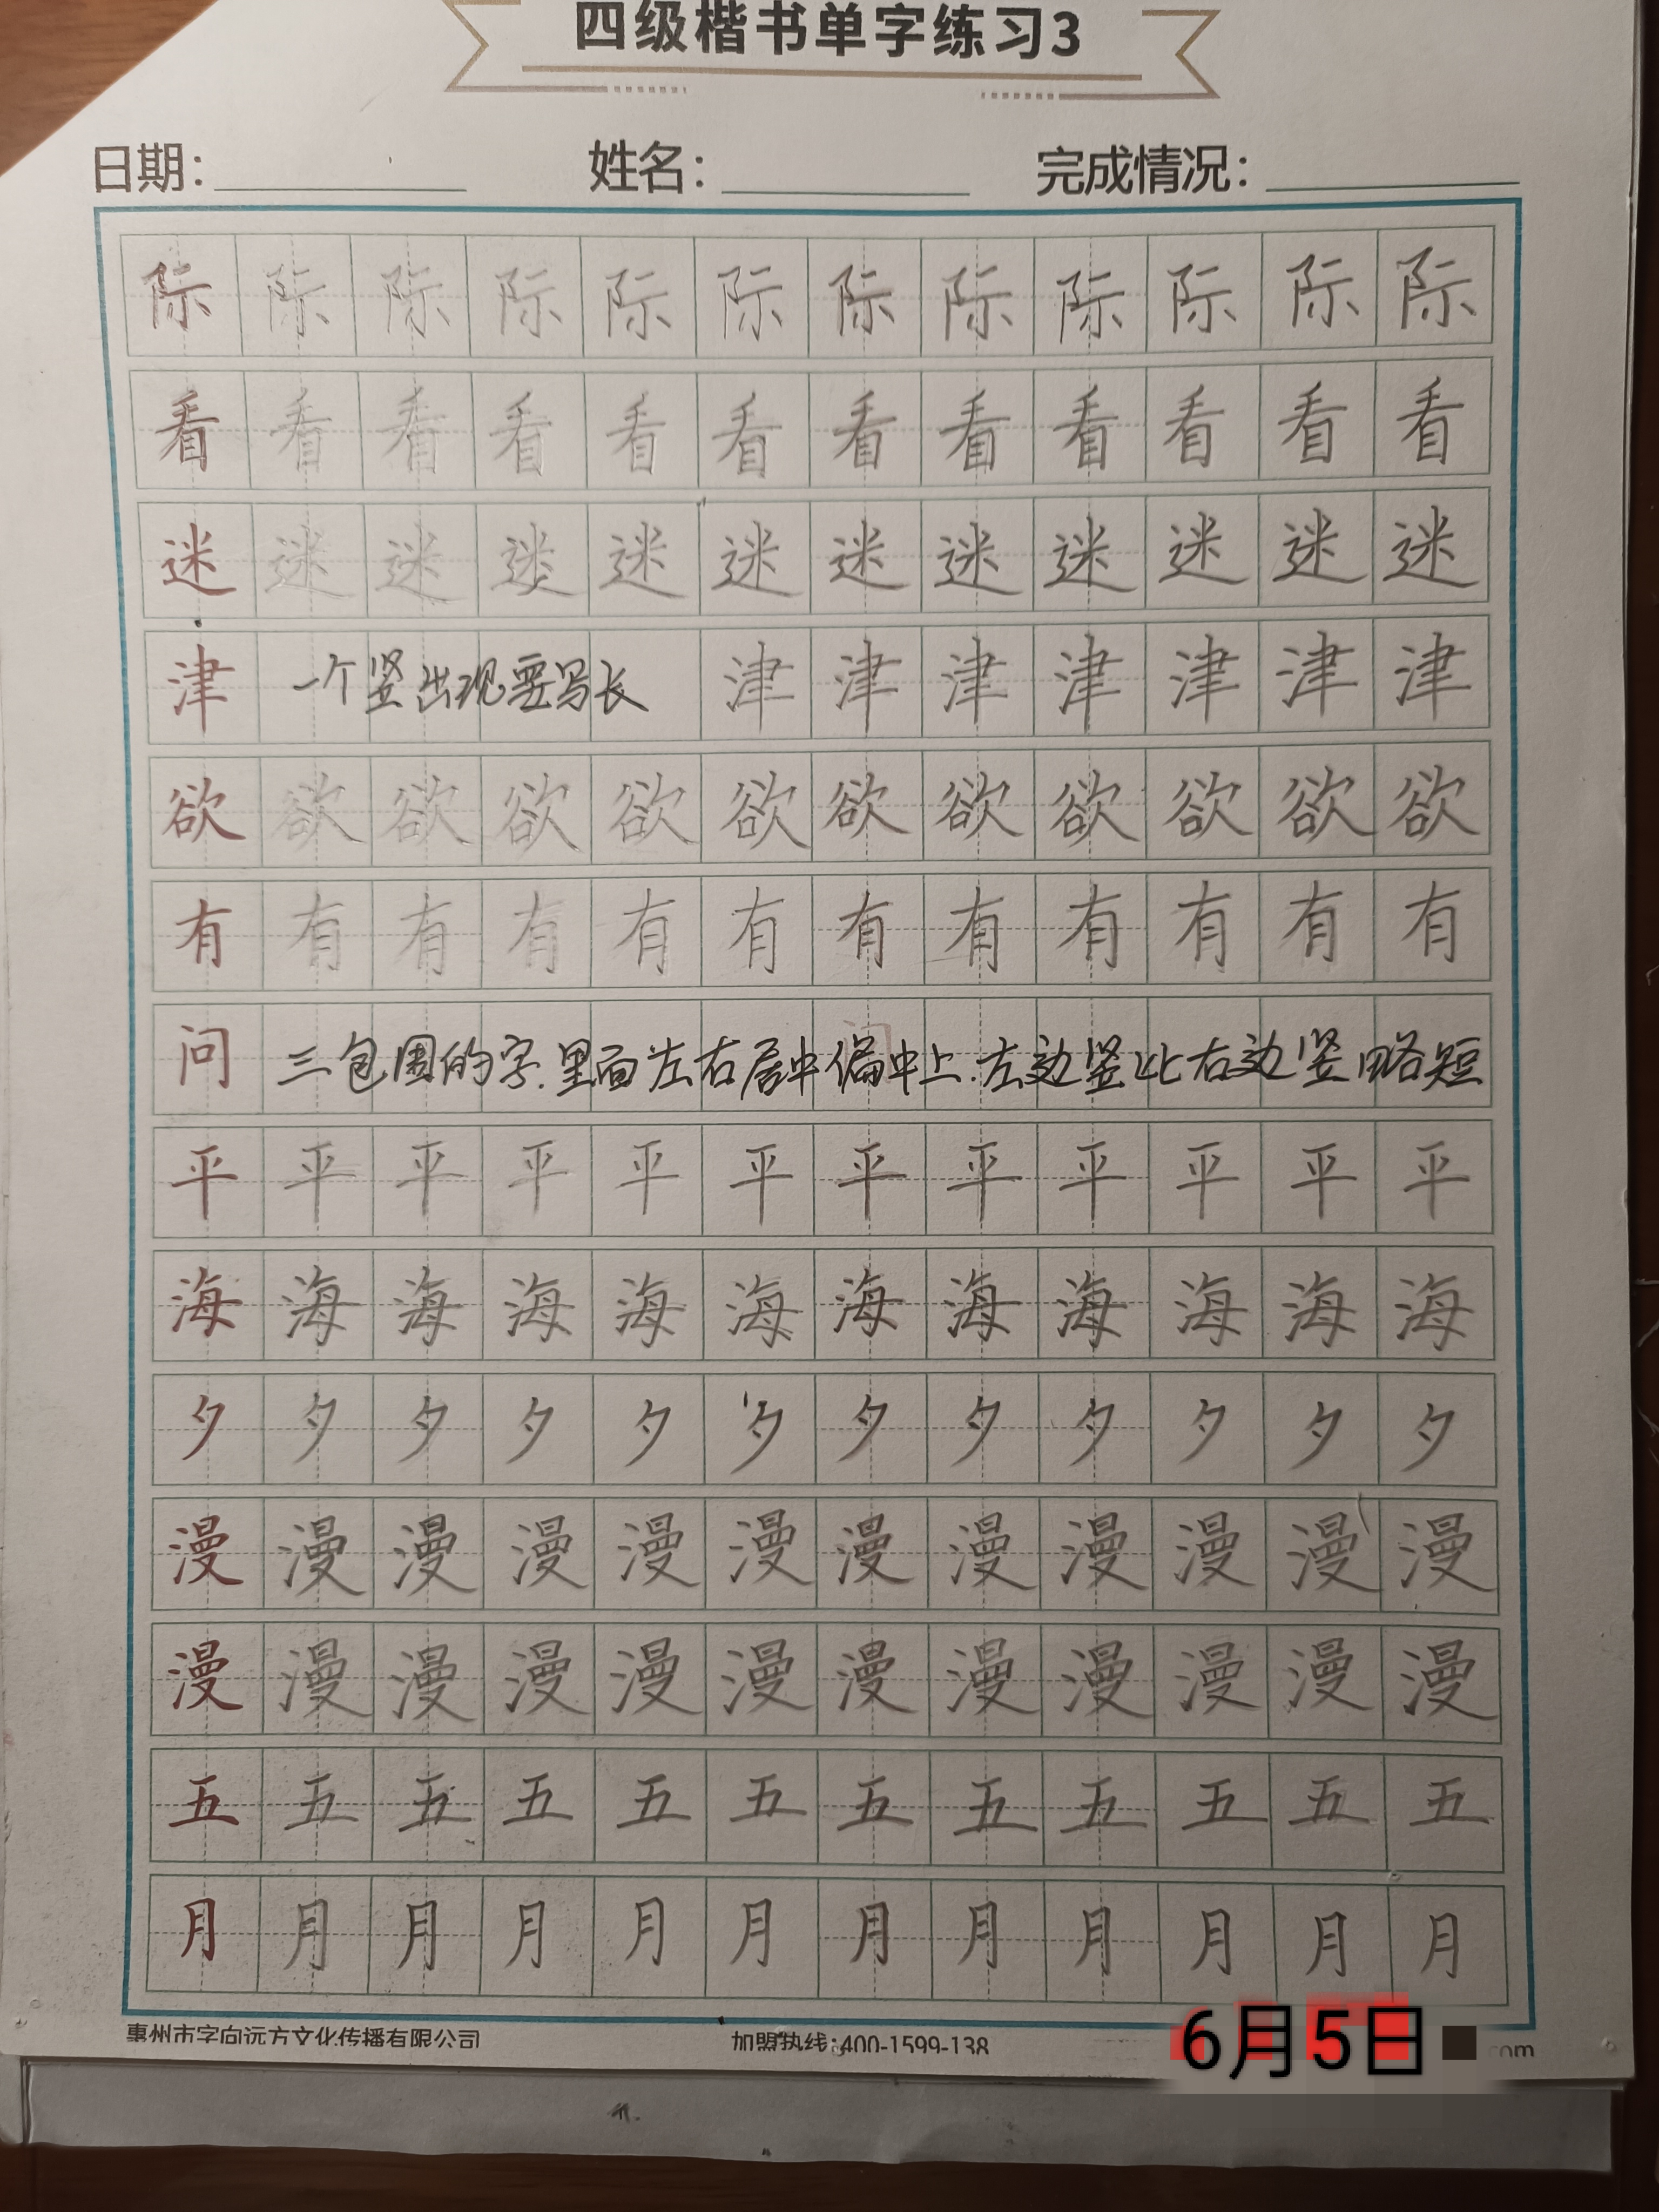 四级楷书单字练习3
日期： 姓名： 完成情况：
际 际 际 际 际 际 际 际 际 际 际 际
看 看 看 看 看 看 看 看 看 看 看 看
迷 迷 迷 迷 迷 迷 迷 迷 迷 迷 迷 迷
津 一个竖出现要写长 津 津 津 津 津 津 津
欲 欲 欲 欲 欲 欲 欲 欲 欲 欲 欲 欲
有 有 有 有 有 有 有 有 有 有 有 有
问 三包围的字.里面左右居中偏中上.左边竖比右边竖略短
平 平 平 平 平 平 平 平 平 平 平 平
海 海 海 海 海 海 海 海 海 海 海 海
夕 夕 夕 夕 夕 夕 夕 夕 夕 夕 夕 夕
漫 漫 漫 漫 漫 漫 漫 漫 漫 漫 漫 漫
漫 漫 漫 漫 漫 漫 漫 漫 漫 漫 漫 漫
五 五 五 五 五 五 五 五 五 五 五 五
月 月 月 月 月 月 月 月 月 月 月 月
惠州市字向远方文化传播有限公司 加盟热线:400-1599-138 .com
6月5日